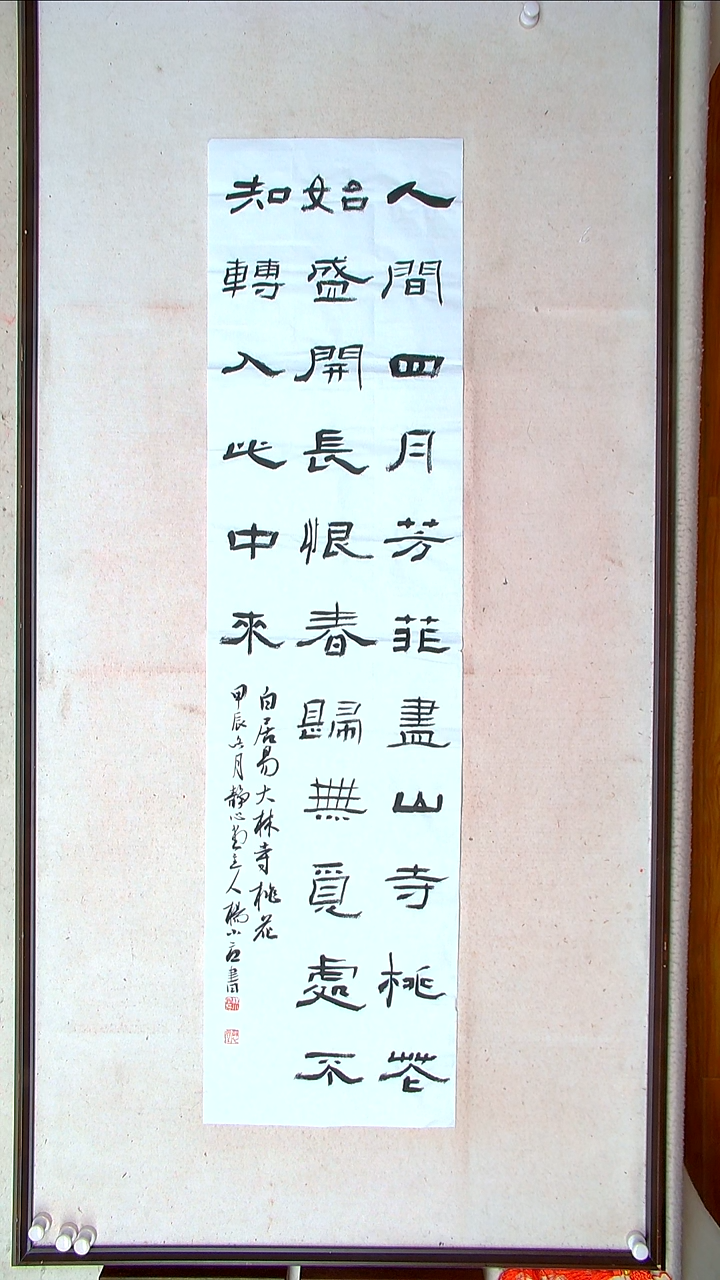 人間四月芳菲盡山寺桃花
始盛開長恨春歸無覓處不
知轉入此中來
白居易大林寺桃花
甲辰六月靜心齋主人楊小京書